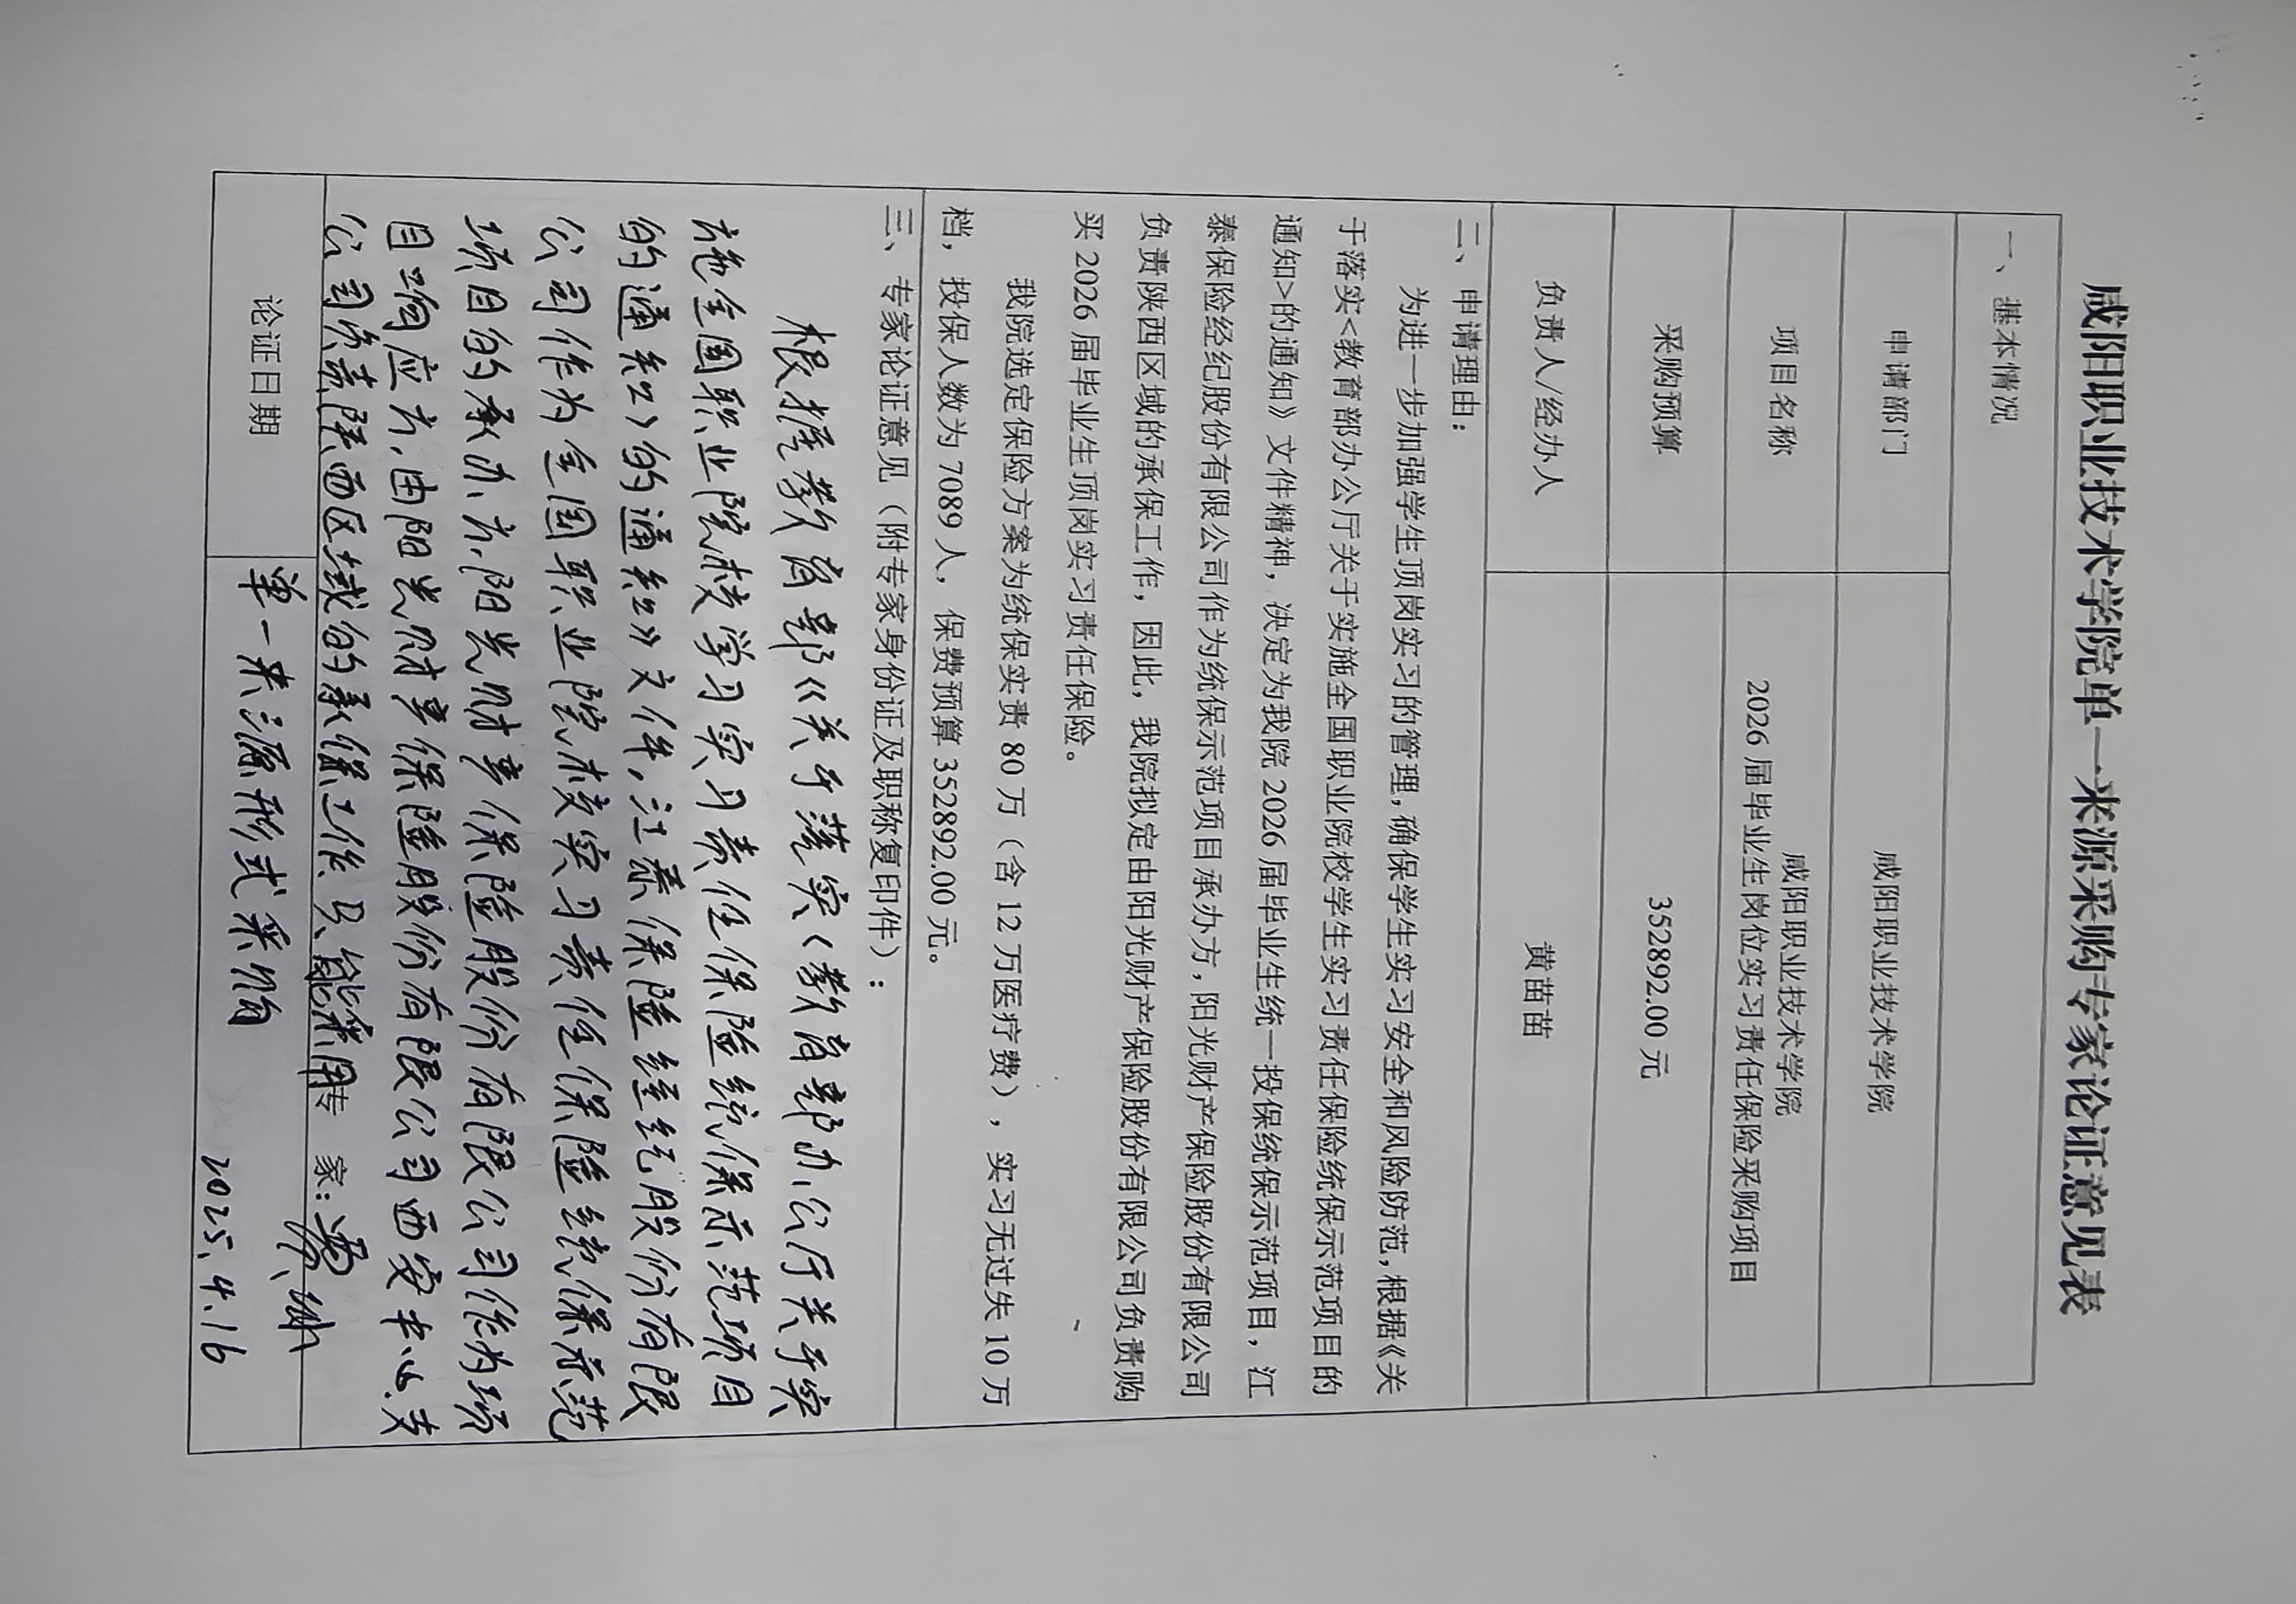 咸阳职业技术学院单一来源采购专家论证意见表
一、基本情况
申请部门 咸阳职业技术学院
项目名称 咸阳职业技术学院
2026 届毕业生岗位实习责任保险采购项目
采购预算 352892.00 元
负责人/经办人 黄苗苗
二、申请理由：
为进一步加强学生顶岗实习的管理，确保学生实习安全和风险防范，根据《关
于落实<教育部办公厅关于实施全国职业院校学生实习责任保险统保示范项目的
通知>的通知》文件精神，决定为我院 2026 届毕业生统一投保统保示范项目，江
泰保险经纪股份有限公司作为统保示范项目承办方，阳光财产保险股份有限公司
负责陕西区域的承保工作，因此，我院拟定由阳光财产保险股份有限公司负责购
买 2026 届毕业生顶岗实习责任保险。
我院选定保险方案为统保实责 80 万（含 12 万医疗费），实习无过失 10 万
档，投保人数为 7089 人，保费预算 352892.00 元。
三、专家论证意见（附专家身份证及职称复印件）：
根据教育部《关于落实〈教育部办公厅关于实
施全国职业院校学习实习责任保险统保示范项目
的通知〉的通知》文件，江泰保险经纪股份有限
公司作为全国职业院校实习责任保险统保示范
项目的承办方，阳光财产保险股份有限公司作为项
目响应方，由阳光财产保险股份有限公司西安中心支
公司负责陕西区域的承保工作，只能采用
单一来源形式采购
专 家：
论证日期 2025.4.16